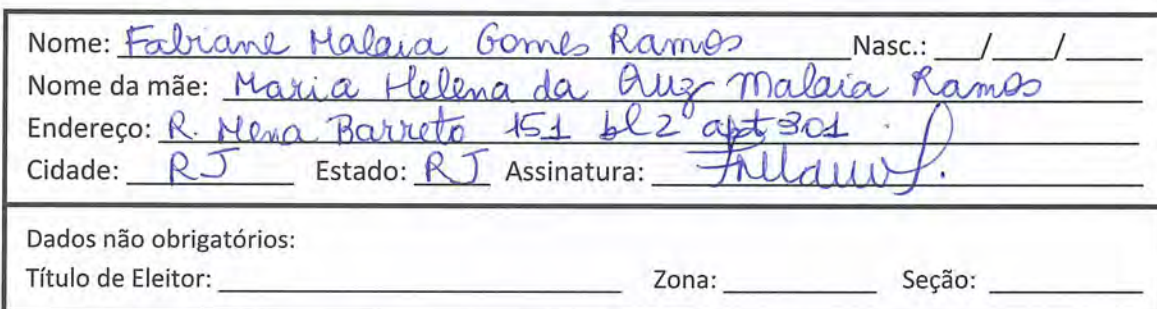 Nome: Fabiane Malaia Gomes Ramos Nasc.: __/__/____
Nome da mãe: Maria Helena da Luz Malaia Ramos
Endereço: R. Mena Barreto 151 bl2 apt 301
Cidade: RJ Estado: RJ Assinatura:
Dados não obrigatórios:
Título de Eleitor: Zona: Seção: